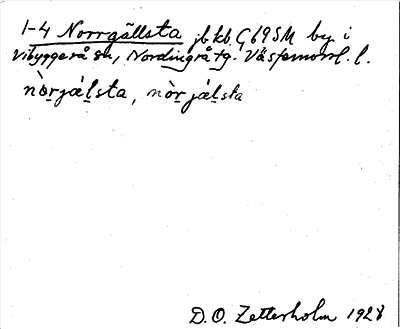 1-4 Norrgällsta jb kb. G 69 SM by i
Vibyggerå sn, Nordingrå tg. Västernorrl. l.
nòrjǽlsta, nòr jǽlsta
D. O. Zetterholm 1928